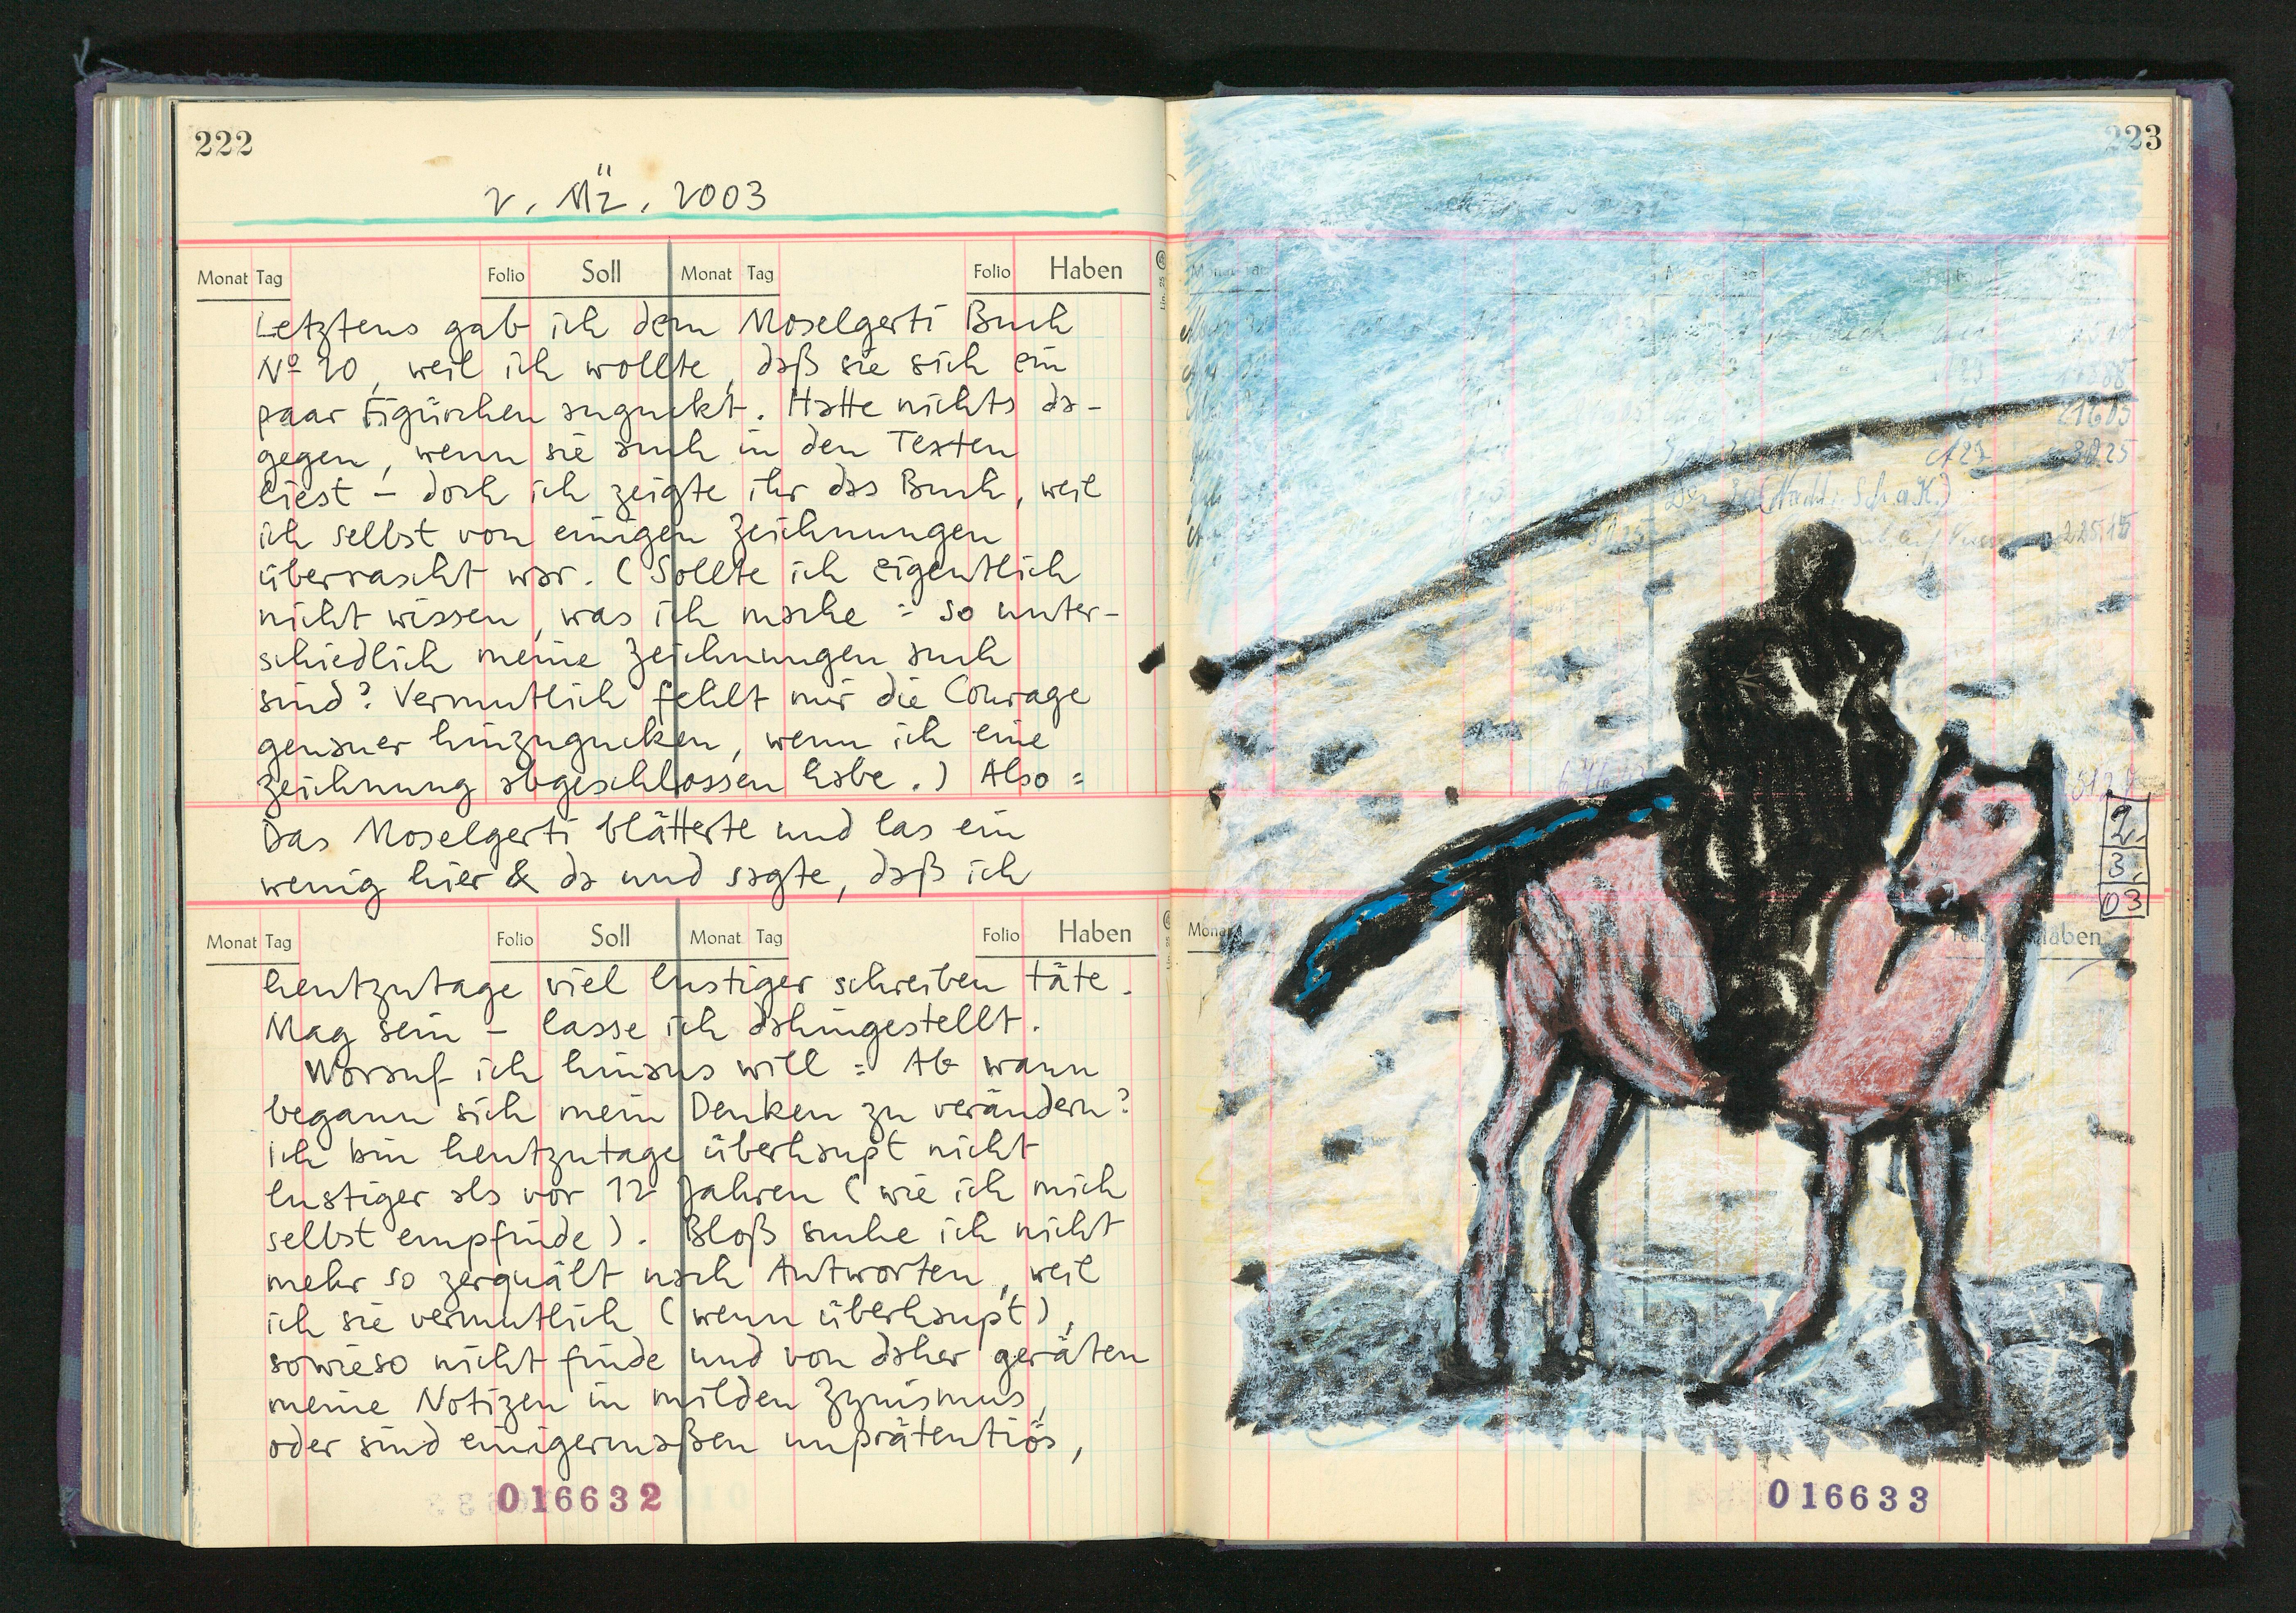 222
2. Mäz. 2003
Monat Tag Folio Soll Monat Tag Folio Haben
Letztens gab ich dem Moselgerti Buch
Nº 20, weil ich wollte, daß sie sich ein
paar Figürchen anguckt. Hatte nichts da-
gegen, wenn sie auch in den Texten
liest – doch ich zeigte ihr das Buch, weil
ich selbst von einigen Zeichnungen
überrascht war. (Sollte ich eigentlich
nicht wissen, was ich mache = so unter-
schiedlich meine Zeichnungen auch
sind? Vermutlich fehlt mir die Courage
genauer hinzugucken, wenn ich eine
Zeichnung abgeschlossen habe.) Also =
Das Moselgerti blätterte und las ein
wenig hier & da und sagte, daß ich
Monat Tag Folio Soll Monat Tag Folio Haben
heutzutage viel lustiger schreiben täte.
Mag sein – lasse ich dahingestellt.
Worauf ich hinaus will = Ab wann
begann sich mein Denken zu verändern?
Ich bin heutzutage überhaupt nicht
lustiger als vor 12 Jahren (wie ich mich
selbst empfinde). Bloß suche ich nicht
mehr so zerquält nach Antworten, weil
ich sie vermutlich (wenn überhaupt),
sowieso nicht finde und von daher geräten
meine Notizen in milden Zynismus,
oder sind einigermaßen unprätentiös,
016632
223
A23
21605
A23 3825
22515
2.
3.
03
Haben
016633